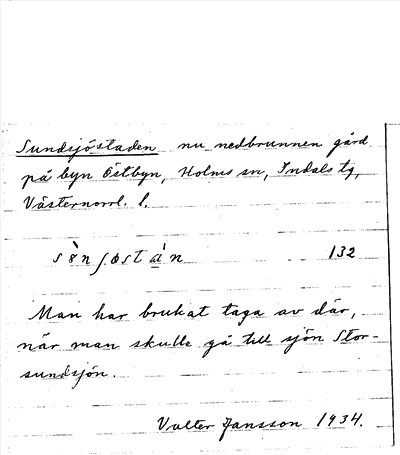 Sundsjöstaden nu nedbrunnen gård
på byn Östbyn, Holms sn, Indals tg,
Västernorrl. l.
132
Man har brukat taga av där,
när man skulle gå till sjön Stor-
sundsjön.
Valter Jansson 1934.